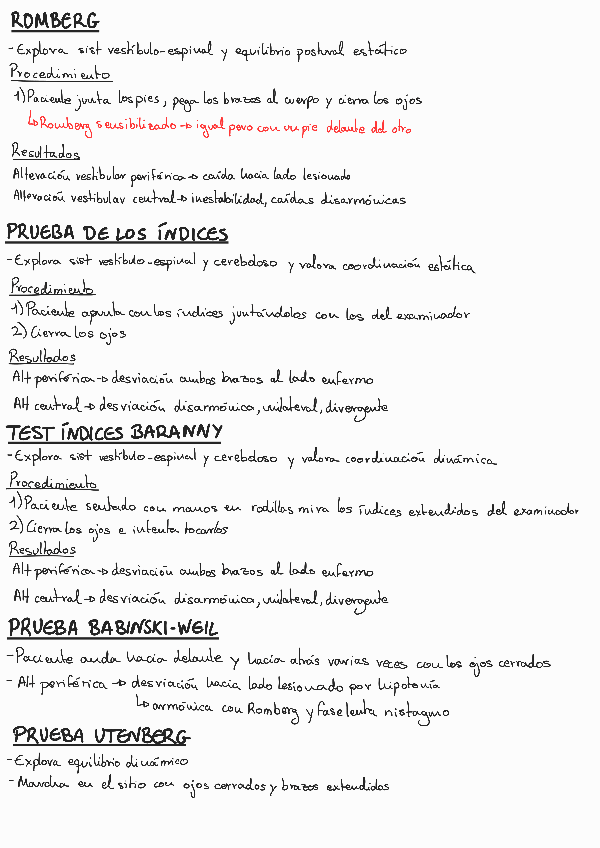 ROMBERG
-Explora sist vestíbulo-espinal y equilibrio postural estático
Procedimiento
1)Paciente junta los pies, pega los brazos al cuerpo y cierra los ojos
↳Romberg sensibilizado → igual pero con un pie delante del otro
Resultados
Alteración vestibular periférica → caída hacia lado lesionado
Alteración vestibular central → inestabilidad, caídas disarmónicas
PRUEBA DE LOS ÍNDICES
-Explora sist vestíbulo-espinal y cerebeloso y valora coordinación estática
Procedimiento
1)Paciente apunta con los índices juntándolos con los del examinador
2)Cierra los ojos
Resultados
Alt periférica → desviación ambos brazos al lado enfermo
Alt central → desviación disarmónica, unilateral, divergente
TEST ÍNDICES BARANNY
-Explora sist vestíbulo-espinal y cerebeloso y valora coordinación dinámica
Procedimiento
1)Paciente sentado con manos en rodillas mira los índices extendidos del examinador
2)Cierra los ojos e intenta tocarlos
Resultados
Alt periférica → desviación ambos brazos al lado enfermo
Alt central → desviación disarmónica, unilateral, divergente
PRUEBA BABINSKI-WEIL
-Paciente anda hacia delante y hacia atrás varias veces con los ojos cerrados
- Alt periférica → desviación hacia lado lesionado por hipotonía
↳armónica con Romberg y fase lenta nistagmo
PRUEBA UTENBERG
-Explora equilibrio dinámico
-Marcha en el sitio con ojos cerrados y brazos extendidos